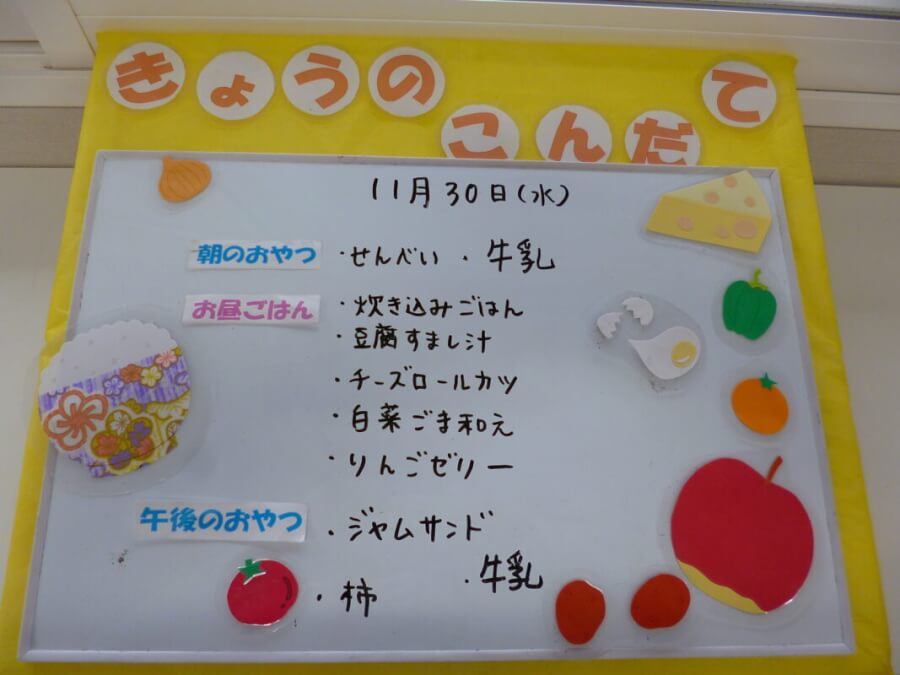 きょうの
こんだて
11月30日(水)
朝のおやつ ・せんべい ・牛乳
お昼ごはん ・炊き込みごはん
・豆腐すまし汁
・チーズロールカツ
・白菜ごま和え
・りんごゼリー
午後のおやつ ・ジャムサンド
・柿 ・牛乳